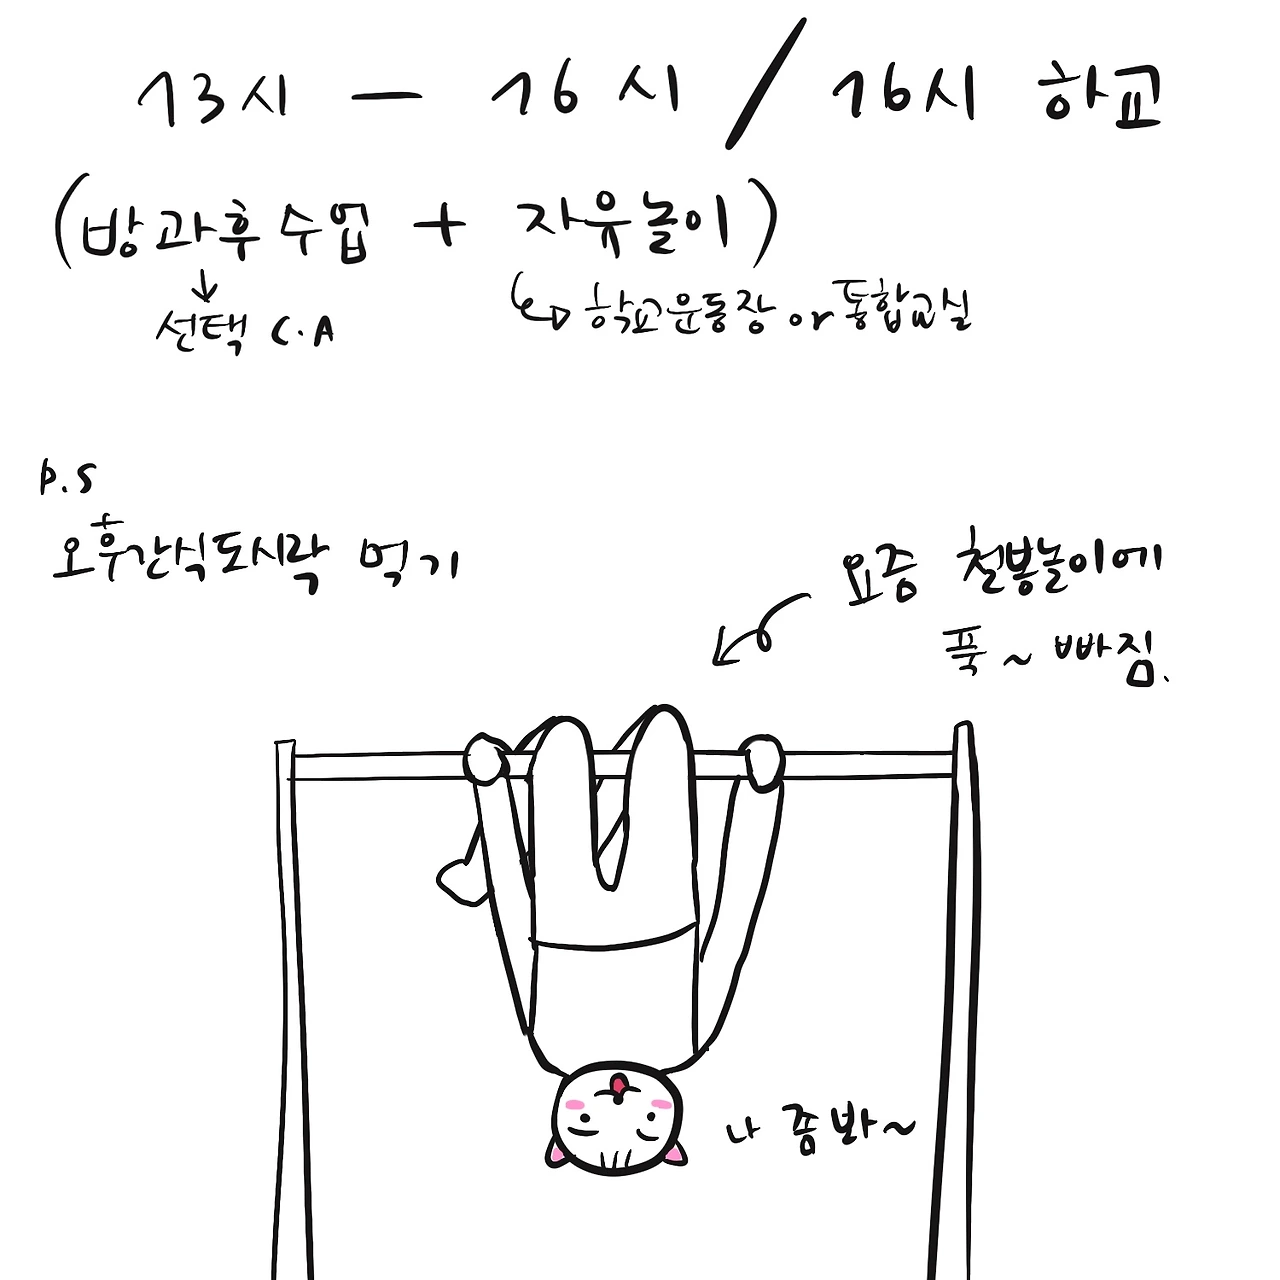 13시 — 16시 / 16시 하교
(방과후 수업 + 자유놀이)
↓
선택 C.A
학교운동장 or 통합교실
P.S
오후간식도시락 먹기
요즘 철봉놀이에
푹~ 빠짐.
나 좀 봐~